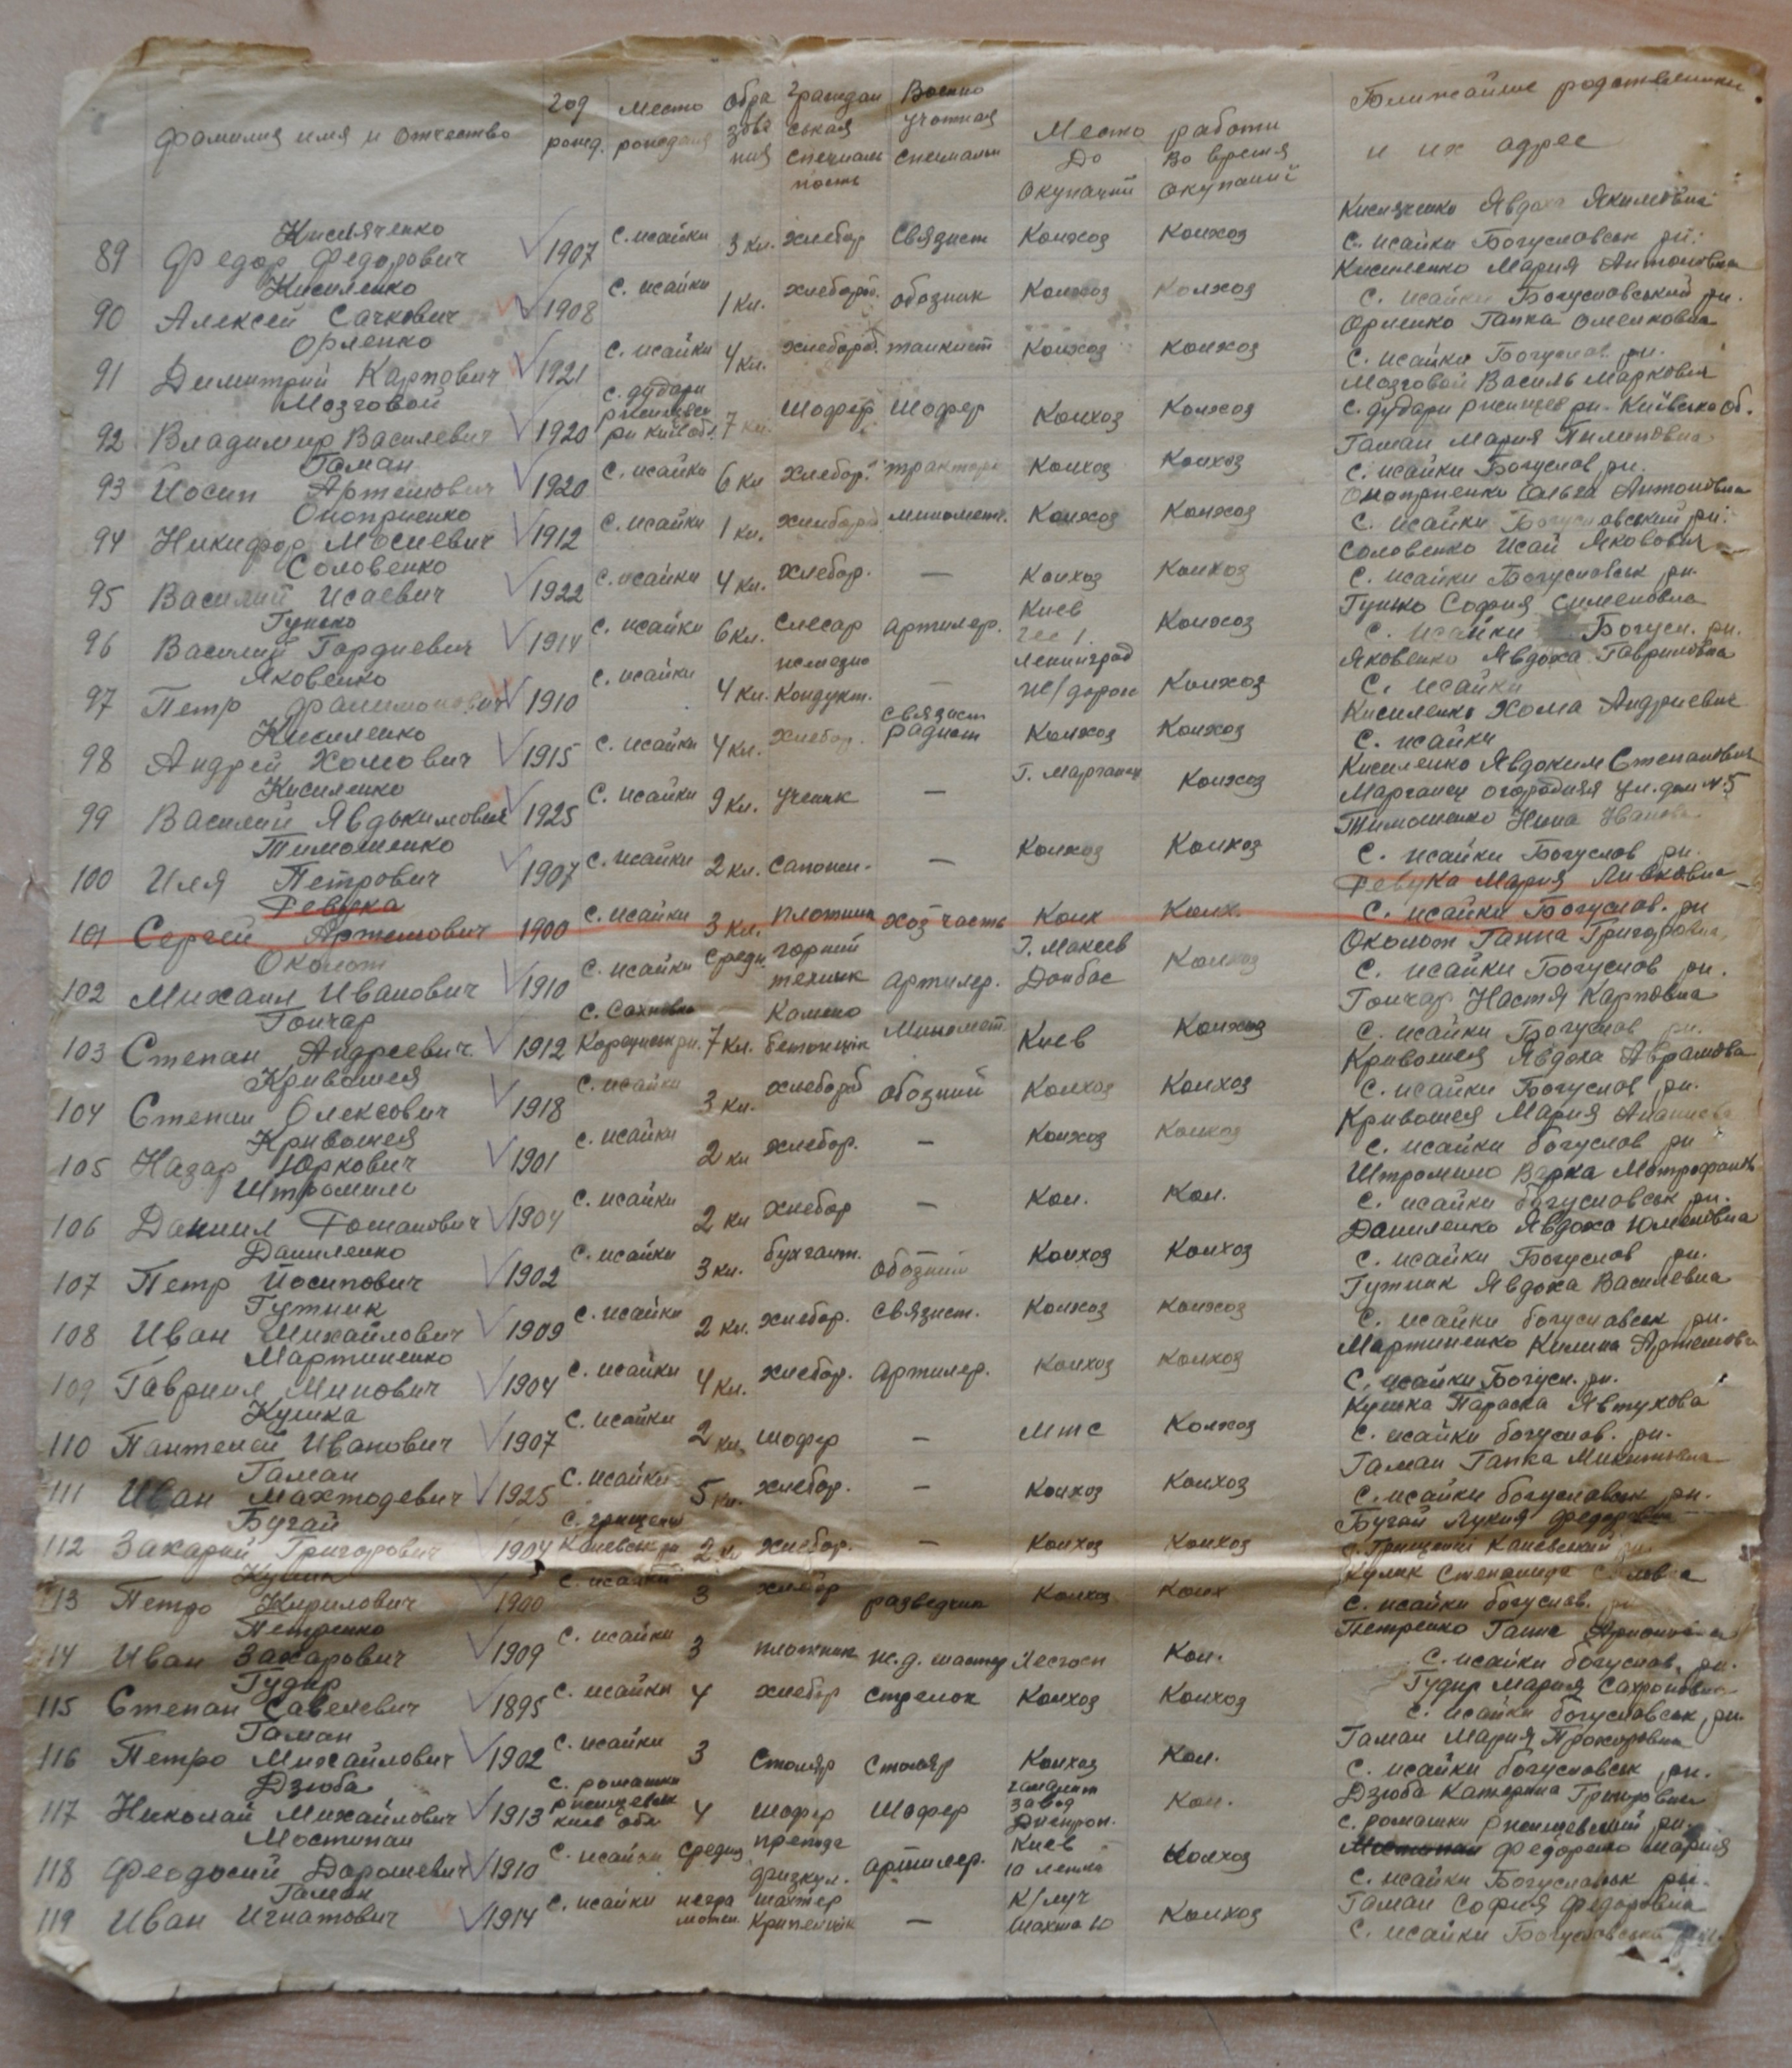 фамилия имя и отчество
год рожд.
место рождения
обра зова ния
граждан ськая специаль ность
Военно учотная специальн
Место работи
До окупации
Во время окупации
Ближайшие родственники
и их адрес
Кисляченко Кисляченко Явдоха Якимовна
89 Федор Федорович 1907 с. исайки 3 кл. хлебор связист Колхоз Колхоз с. исайки Богуславськ рн.
Кисиленко Кисиленко Мария Антоновна
90 Алексей Сачкович 1908 с. исайки 1 кл. хлебороб. обозник Колхоз Колхоз с. исайки Богуславський рн.
Орленко Орленко Ганка Омелковна
91 Димитрий Карпович 1921 с. исайки 4 кл. хлебороб. танкист Колхоз Колхоз с. исайки Богуслав рн.
Мозговой Мозговой Василь Маркович
92 Владимир Василевич 1920 с. дудари ржищев рн Київ обл. 7 кл. Шофер Шофер Колхоз Колхоз с. дудари ржищев рн. Київсько об.
Гаман Гаман Мария Пилиповна
93 Иосип Артемович 1920 с. исайки 6 кл хлебор. трактор. Колхоз Колхоз с. исайки Богуслав рн.
Оноприенко Оноприенко Ольга Антоновна
94 Никифор Мосиевич 1912 с. исайки 1 кл. хлебороб миномет. Колхоз Колхоз с. исайки Богуславський рн.
Соловенко Соловенко Исай Якович
95 Василий Исаевич 1922 с. исайки 4 кл. хлебор. — Колхоз Колхоз с. исайки Богуславськ рн.
Гунько Гунько София Сименовна
96 Василий Гордиевич 1914 с. исайки 6 кл. слесар артилер. Киев Колхоз с. исайки Богусл. рн.
Яковенко Яковенко Явдоха Гавриловна
97 Петр Филимонович 1910 с. исайки 4 кл. железно Кондукт. — Ленинград ж/дорож Колхоз с. исайки
Кисиленко Кисиленко Хома Андриевич
98 Андрей Хомович 1915 с. исайки 4 кл. хлебор. связист радист Колхоз Колхоз с. исайки
Кисиленко Кисиленко Явдоким Степанович
99 Василий Явдокимович 1925 с. исайки 9 кл. ученик — Г. Марганец Колхоз Марганец огородняя ул. дом № 5
Тимошенко Тимошенко Нина Иванова
100 Иля Петрович 1907 с. исайки 2 кл. сапожн. — Колхоз Колхоз с. исайки Богуслав рн.
Ревука Ревука Мария Ливковна
101 Сергей Артемович 1900 с. исайки 3 кл. плотник хоз часть Колх Колх. с. исайки Богуслав. рн
Околот Околот Ганна Григоровна
102 Михаил Иванович 1910 с. исайки средн. горний технык артилер. Г. Макеев Донбас Колхоз с. исайки Богуслав рн.
Гончар Гончар Настя Карповна
103 Степан Андреевич 1912 с. Сахновка Корсунськ рн. 7 кл. Камено бетонщик Миномет. Киев Колхоз с. исайки Богуслав рн.
Кривошея Кривошея Явдоха Аврамова
104 Степан Олексович 1918 с. исайки 3 кл. хлебороб обозний Колхоз Колхоз с. исайки Богуслав рн.
Кривошея Кривошея Мария
105 Назар Юркович 1901 с. исайки 2 кл хлебор. — Колхоз Колхоз с. исайки богуслов рн
Штромило Штромило Варка Мотрофанов
106 Даниил Романович 1904 с. исайки 2 кл хлебор — Кол. Кол. с. исайки богуславськ рн.
Даниленко Даниленко Явдоха Юменовна
107 Петр Йосипович 1902 с. исайки 3 кл. бухгалт. обозний Колхоз Колхоз с. исайки Богуслов рн.
Гутник Гутник Явдоха Василевна
108 Иван Михайлович 1909 с. исайки 2 кл. хлебор. связист. Колхоз Колхоз с. исайки богуславськ рн.
Мартиненко Мартиненко Килина Артемова
109 Гавриил Минович 1904 с. исайки 4 кл. хлебор. артилер. Колхоз Колхоз с. исайки Богусл. рн.
Кушка Кушка Параска Явтухова
110 Пантелей Иванович 1907 с. исайки 2 кл. шофер — мтс Колхоз с. исайки богуслав. рн.
Гаман Гаман Ганка Микитовна
111 Иван Махтодевич 1925 с. исайки 5 кл. хлебор. — Колхоз Колхоз с. исайки богуславськ рн.
Бугай Бугай Лукия Федоровна
112 Захарий Григорович 1904 с. грищенці Каневськ рн 2 кл хлебор. — Колхоз Колхоз с. Грищенці Каневський рн.
Кулик Кулик Степанида
113 Петро Кирилович 1900 с. исайки 3 хлебор разведчик Колхоз Колх с. исайки богуслав. рн
Петренко Петренко Ганна
114 Иван Захарович 1909 с. исайки 3 плотник ж.д. мастер Лесхосп Кол. с. исайки богуслав. рн.
Гудыр Гудыр Мария Сахроновна
115 Степан Савелевич 1895 с. исайки 4 хлебор стрелок Колхоз Колхоз с. исайки богуславськ рн.
Гаман Гаман Мария Прохоровна
116 Петро Михайлович 1902 с. исайки 3 Столяр Столяр Колхоз Кол. с. исайки богуславськ рн.
Дзюба Дзюба Катерина Григоровна
117 Николай Михайлович 1913 с. ромашки ржищевськ київ обл 4 шофер Шофер завод Днепроп. Кол. с. ромашки ржищевський рн.
Мостипан Мостипан Федоренко Мария
118 Феодосий Дорошевич 1910 с. исайки средня препода физкул. артилер. Киев 10 Колхоз с. исайки Богуславськ рн.
Гаман Гаман София Федоровна
119 Иван Игнатович 1914 с. исайки негра мотн. шахтер Крипельщик — К/луч Шахта 10 Колхоз с. исайки Богуславський